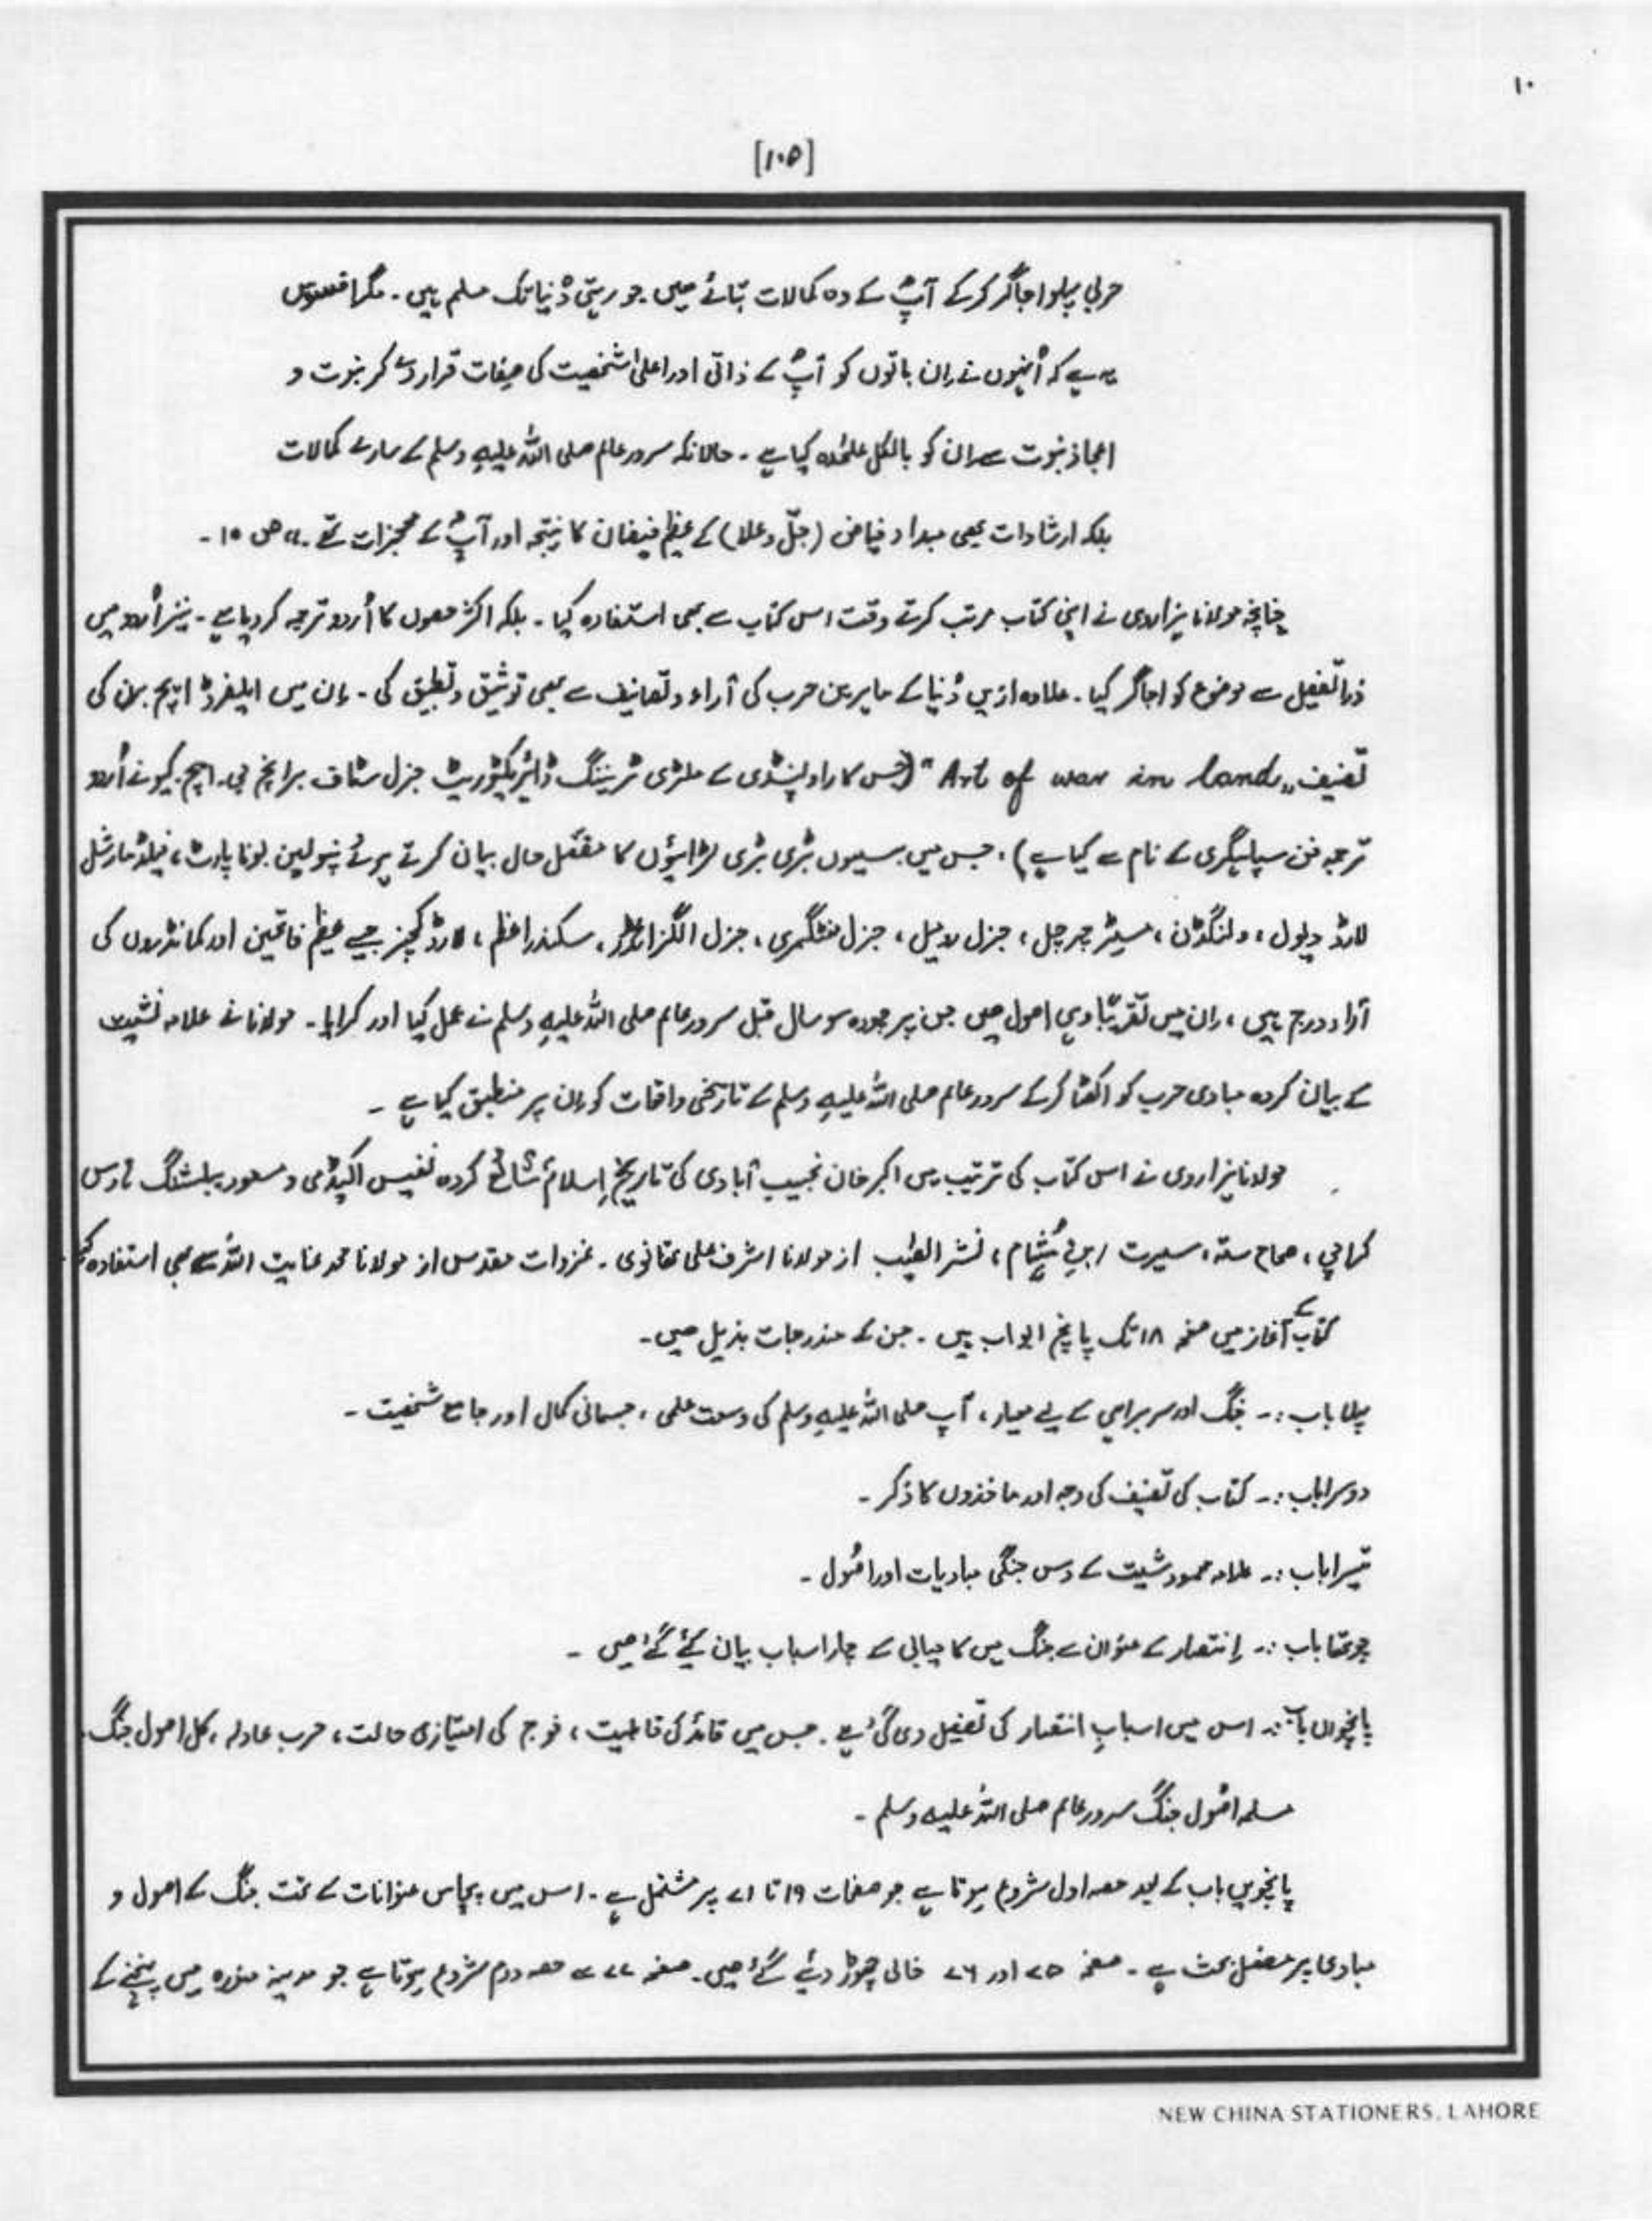 ۱۰
[۱۰۵]
حربی پہلو اجاگر کرکے آپؐ کے وہ کمالات بتائے ہیں جو رہتی دُنیا تک مسلم ہیں۔ مگر افسوس
یہ ہے کہ اُنہوں نے اِن باتوں کو آپؐ کے ذاتی اور اعلیٰ شخصیت کی صفات قرار دے کر نبوت و
اعجاز نبوت سے ان کو بالکل علیٰحدہ کیا ہے ۔ حالانکہ سرور عالم صلی اللہ علیہ وسلم کے سارے کمالات
بلکہ ارشادات بھی مبداء فیاض (جلّ و علا) کے عظیم فیضان کا نتیجہ اور آپؐ کے معجزات تھے ۔" ص ۱۵ ۔
چنانچہ مولانا ہزاروی نے اپنی کتاب مرتب کرتے وقت اس کتاب سے بھی استفادہ کیا ۔ بلکہ اکثر حصوں کا اُردو ترجمہ کر دیا ہے ۔ نیز اُردو میں
ذرا تفصیل سے موضوع کو اجاگر کیا ۔ علاوہ ازیں دُنیا کے ماہرین حرب کی آراء و تصانیف سے بھی توثیق و تطبیق کی ۔ اِن میں ایلفرڈ ایچ برن کی
تصنیف "Art of war in land" (جس کا راولپنڈی کے ملٹری ٹریننگ ڈائریکٹوریٹ جنرل سٹاف برانچ جی۔ ایچ۔ کیو نے اُردو
ترجمہ فن سپاہگری کے نام سے کیا ہے) ، جس میں بیسیوں بڑی بڑی لڑائیوں کا مفصّل حال بیان کرتے ہوئے نپولین بوناپارٹ ، فیلڈ مارشل
لارڈ ویول ، ولنگڈن ، مسٹر چرچل ، جنرل رومیل ، جنرل منٹگمری ، جنرل الگزانڈر ، سکندر اعظم ، لارڈ کچنر جیسے عظیم فاتحین اور کمانڈروں کی
آراء درج ہیں ، اِن میں تقریباً وہی اصول ہیں جن پر چودہ سو سال قبل سرور عالم صلی اللہ علیہ وسلم نے عمل کیا اور کرایا ۔ مولانا نے علامہ شیت
کے بیان کردہ مبادی حرب کو اکٹھا کرکے سرور عالم صلی اللہ علیہ وسلم کے تاریخی واقعات کو اِن پر منطبق کیا ہے ۔
مولانا ہزاروی نے اس کتاب کی ترتیب میں اکبر خان نجیب آبادی کی تاریخِ اِسلام شائع کردہ نفیس اکیڈمی و مسعود پبلشنگ ہاوس
کراچی ، صحاح ستہ ، سیرت ابنِ ہُشام ، نشر الطیب از مولانا اشرف علی تھانوی ۔ غزوات مقدس از مولانا محمد عنایت اللہ سے بھی استفادہ کیا
کتاب کے آغاز میں صفحہ ۱۸ تک پانچ ابواب ہیں ۔ جن کے مندرجات بذیل ہیں۔
پہلا باب :۔ جنگ اور سربراہی کے لیے معیار ، آپ صلی اللہ علیہ وسلم کی وسعت علمی ، جسمانی کمال اور جامع شخصیت ۔
دوسرا باب :۔ کتاب کی تصنیف کی وجہ اور ماخذوں کا ذکر ۔
تیسرا باب :۔ علامہ محمود شیت کے دس جنگی مبادیات اور اصُول ۔
چوتھا باب :۔ اِنتصار کے عنوان سے جنگ میں کامیابی کے چار اسباب بیان کیٔے گئے ہیں ۔
پانچواں باب :۔ اس میں اسبابِ انتصار کی تفصیل دی گئی ہے . جس میں قائد کی قابلیت ، فوج کی امتیازی حالت ، حرب عادلہ ، کل اصول جنگ
مسلمہ اصُول جنگ سرور عالم صلی اللہ علیہ وسلم ۔
پانچویں باب کے بعد حصہ اول شروع ہوتا ہے جو صفحات ۱۹ تا ۷۱ پر مشتمل ہے ۔ اس میں پچاس عنوانات کے تحت جنگ کے اصول و
مبادی پر مفصل بحث ہے ۔ صفحہ ۷۵ اور ۷۶ خالی چھوڑ دئیے گئے ہیں۔ صفحہ ۷۷ سے حصہ دوم شروع ہوتا ہے جو مدینہ منورہ میں پہنچنے کے
NEW CHINA STATIONERS, LAHORE